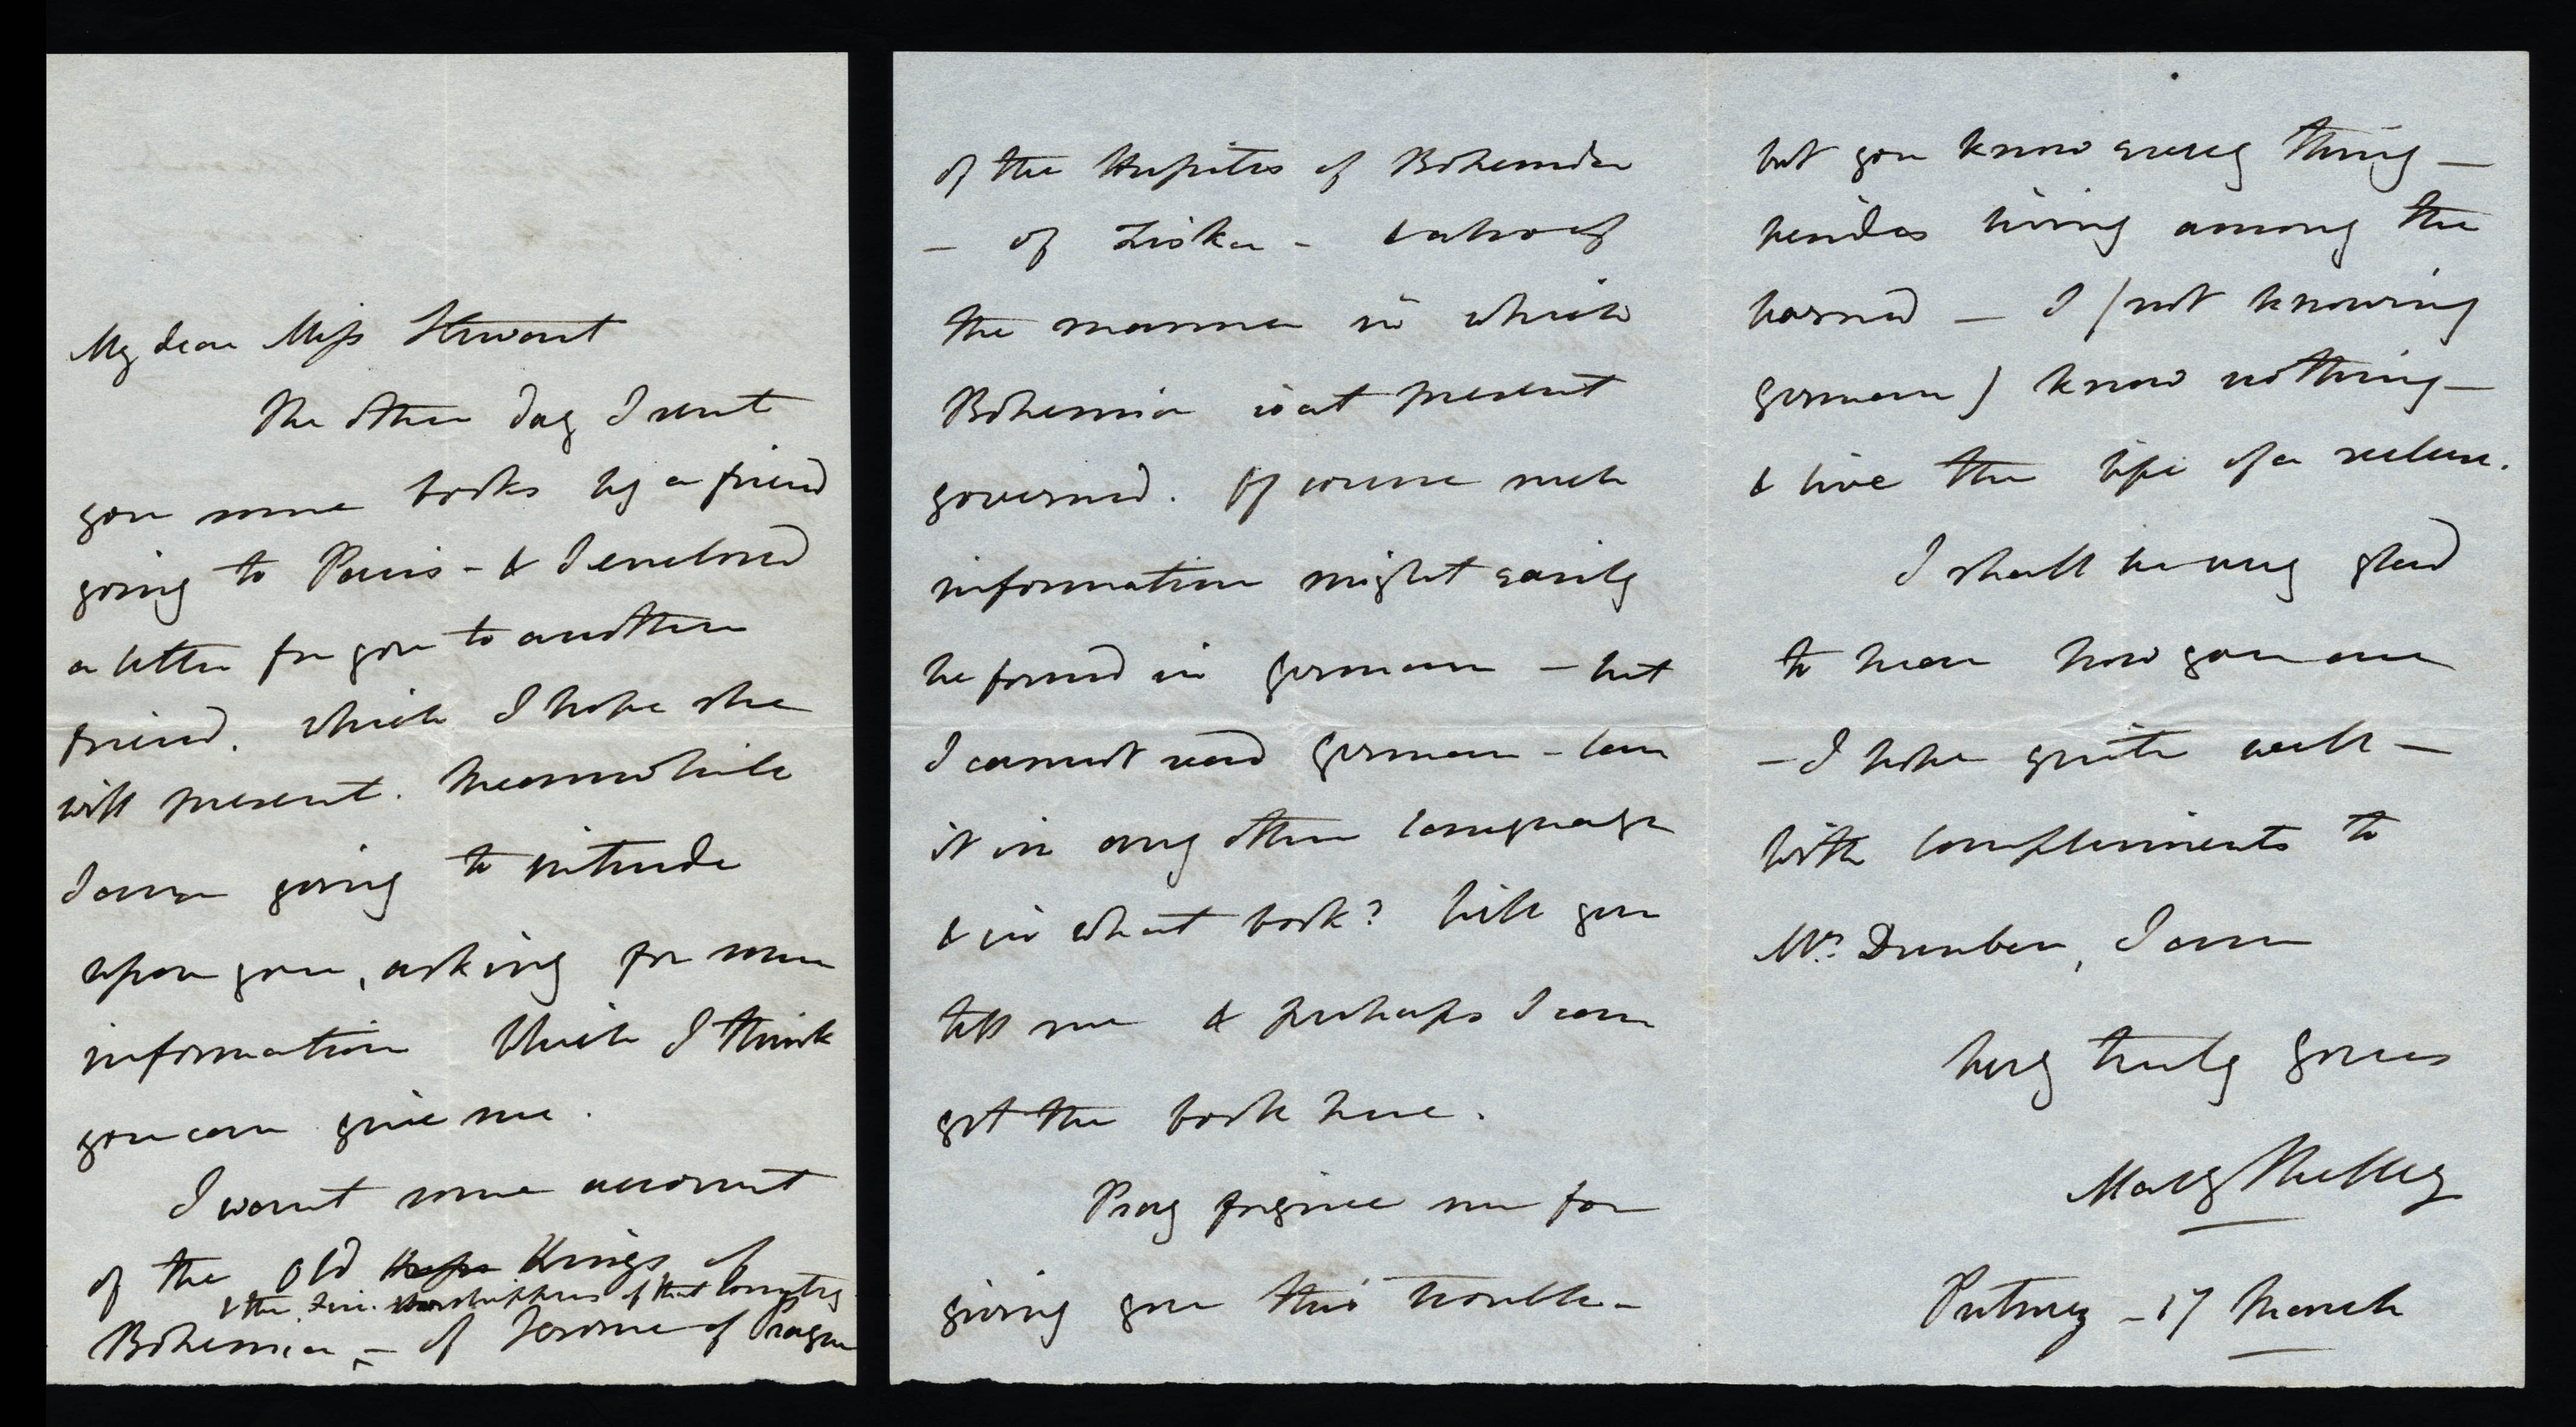 My dear Miss Stewart
The other day I sent
you some books by a friend
going to Paris - & I enclosed
a letter for you to another
friend. which I hope she
will present. Meanwhile
I am going to intrude
upon you, asking for some
information which I think
you can give me.
I want some account
of the old Kings of
& the Fire-worshippers of that Country
Bohemia - of Jerome of Prague
of the Hussites of Bohemia
- of Ziska - & also of
the manner in which
Bohemia is at present
governed. Of course such
information might easily
be found in German - but
I cannot read German - Can
it in any other language
& in what book? Will you
tell me & perhaps I can
get the book here.
Pray forgive me for
giving you this trouble -
but you know every thing -
besides living among the
learned - I (not knowing
German) know nothing -
& live the life of a recluse.
I shall be very glad
to hear how you are
- I hope quite well -
With compliments to
Mrs Dunbar, I am
Very truly yours
Mary Shelley
Putney - 17 March